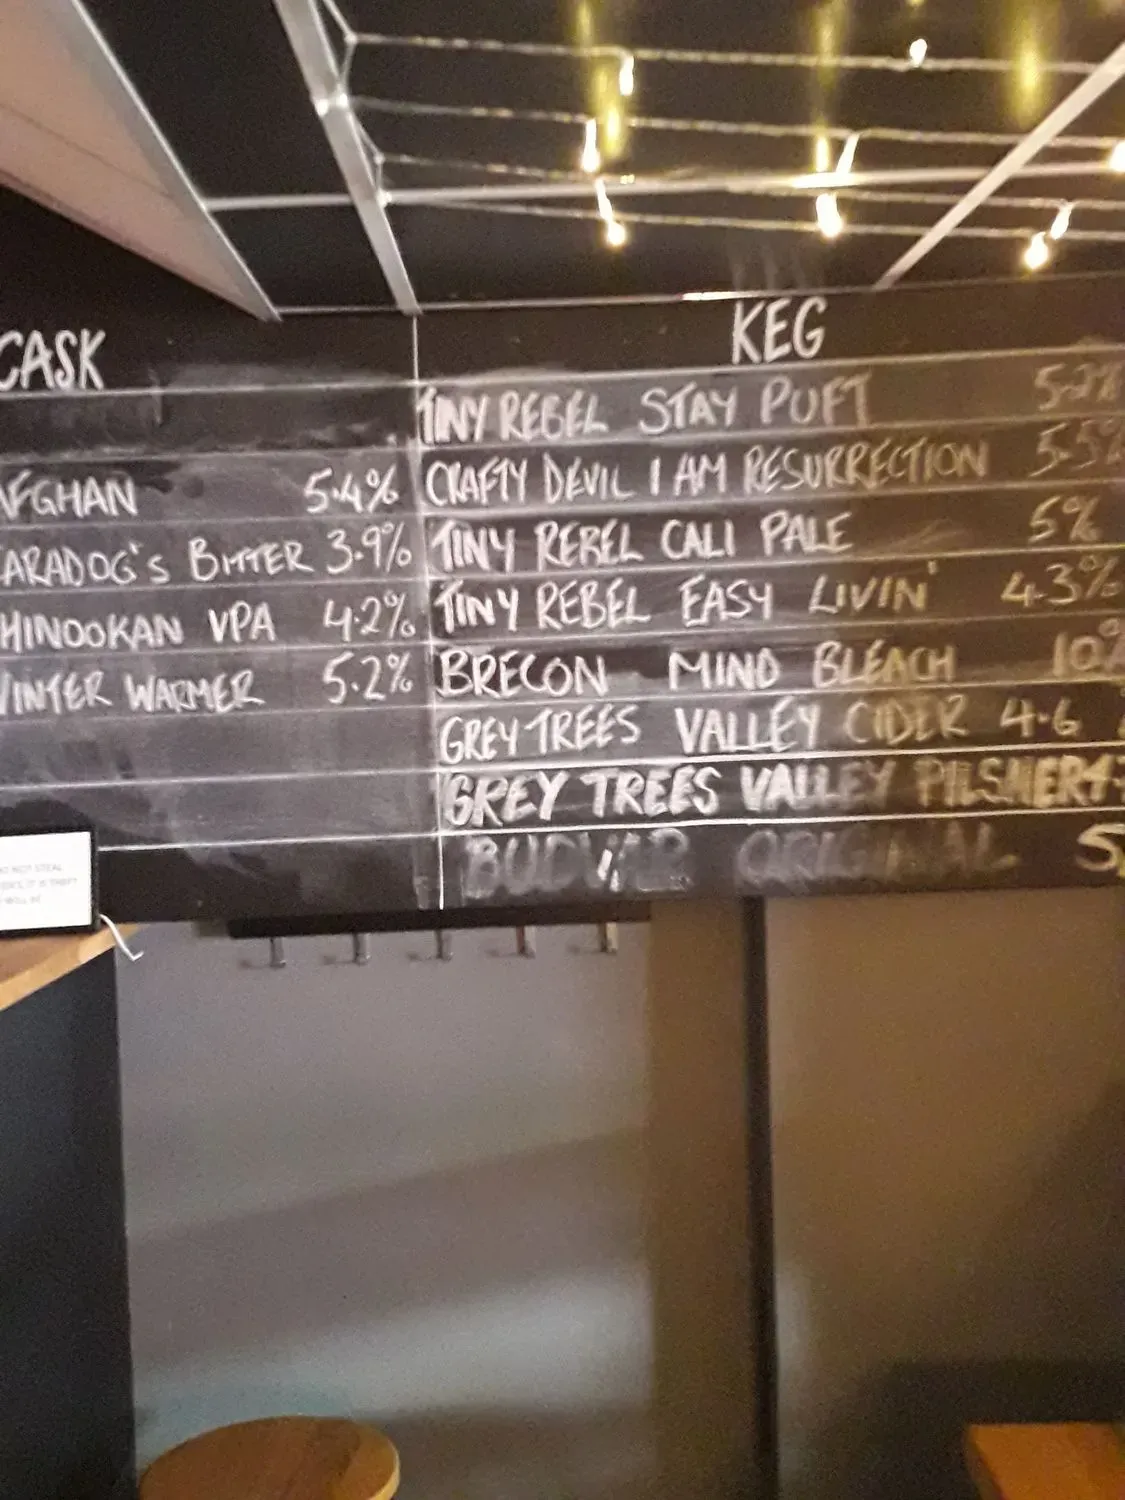 CASK
AFGHAN 5.4%
ARADOG'S BITTER 3.9%
HINOOKAN VPA 4.2%
WINTER WARMER 5.2%
KEG
TINY REBEL STAY PUFT 5.2%
CRAFTY DEVIL I AM RESURRECTION 5.5%
TINY REBEL CALI PALE 5%
TINY REBEL EASY LIVIN' 4.3%
BRECON MIND BLEACH 10%
GREY TREES VALLEY CIDER 4.6
GREY TREES VALLEY PILSNER 4.7
BUDVAR ORIGINAL 5
NOT STEAL
IT IS THEFT
WILL BE